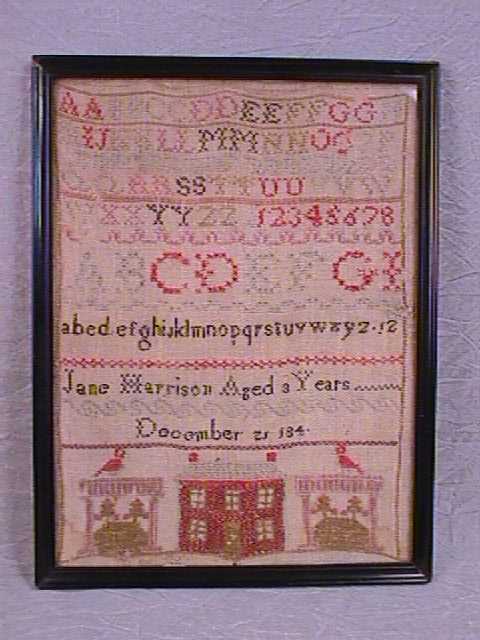 AA CC DD EE FF GG
LL MM NN OO
RR SS TT UU
XX YY ZZ 12345678
ABCDEFG
abcdefghijklmnopqrstuvwxyz. 12
Jane Harrison Aged 8 Years
December 21 184